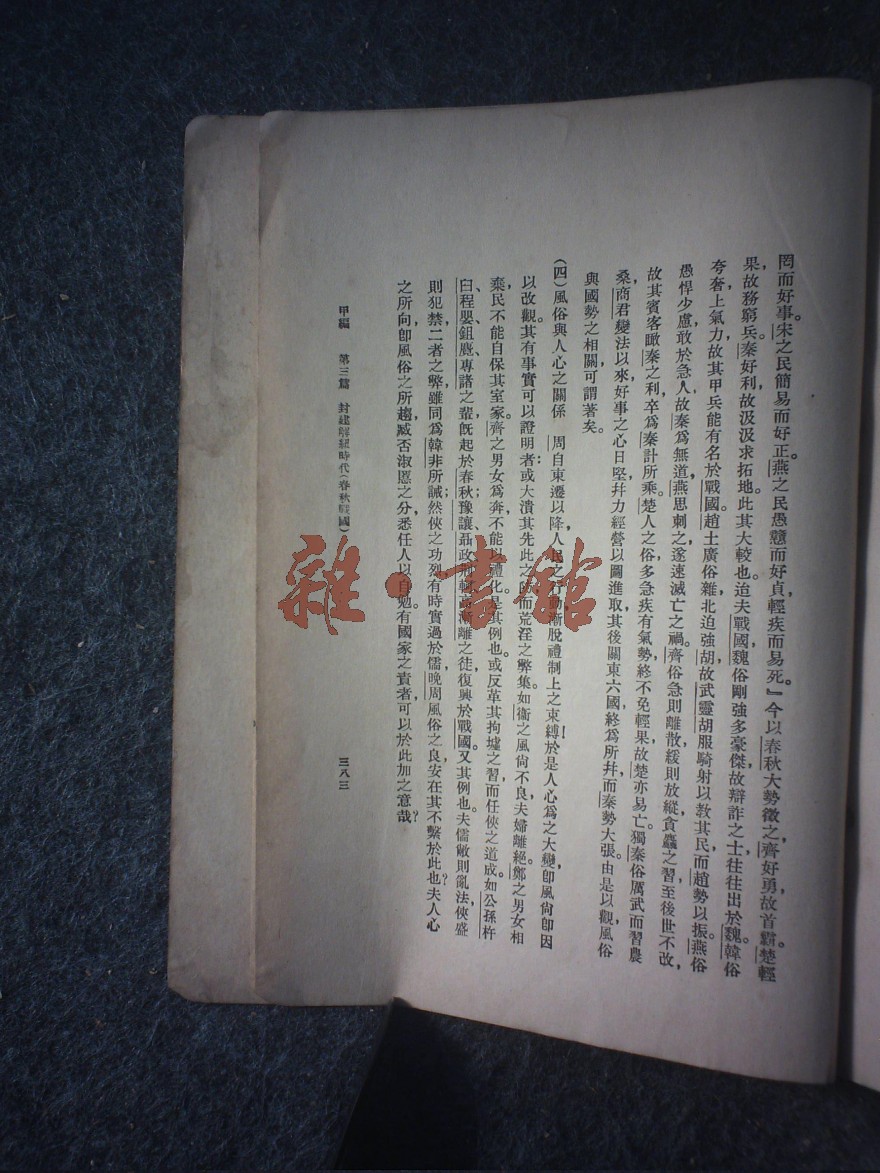 罔而好事。宋之民簡易而好正。燕之民愚戇而好貞，輕疾而易死。』今以春秋大勢徵之，齊好勇故首霸。楚輕
果，故務窮兵。秦好利故汲汲求拓地。此其大較也。迨夫戰國，魏俗剛強多豪傑，故辯詐之士往往出於魏。韓俗
夸奢上氣力，故其甲兵能有名於戰國。趙土廣俗雜，北迫强胡，故武靈胡服騎射以教其民，而趙勢以振。燕俗
愚悍少慮，敢於急人，故秦爲無道，燕思刺之，遂速滅亡之禍。齊俗急則離散，緩則放縱，貪麤之習，至後世不改，
故其賓客啗秦之利，卒爲秦計所乘。楚人之俗，多急疾有氣勢，終不免輕果，故楚亦易亡。獨秦俗厲武而習農
桑，商君變法以來，好事之心日堅，幷力經營，以圖進取，其後關東六國，終爲所幷，而秦勢大張。由是以觀，風俗
與國勢之相關，可謂著矣。
(四)風俗與人心之關係　周自東遷以降，人民之行動，漸脫禮制上之束縛！於是人心爲之大變，卽風尙卽因
以改觀。其有事實可以證明者：或大潰其先此之防，而荒淫之弊集。如衞之風尙不良，夫婦離絕。鄭之男女相
棄，民不能自保其室家。齊之男女爲奔，不能以禮化。是其例也。或反革其拘墟之習，而任俠之道成。如公孫杵
臼、程嬰、鉏麑、專諸之輩，旣起於春秋；豫讓、聶政、荆軻、高漸離之徒，復興於戰國。又其例也。夫儒敝則亂法，俠盛
則犯禁，二者之弊，雖同爲韓非所誡，然俠之功烈，有時實過於儒，晚周風俗之良，安在其不繫於此也？夫人心
之所向，卽風俗之所趨，臧否淑慝之分，悉任人以自勉。有國家之責者，可以於此加之意哉？
甲編　第三篇　封建解紐時代(春秋戰國)
三八三
雜·書館